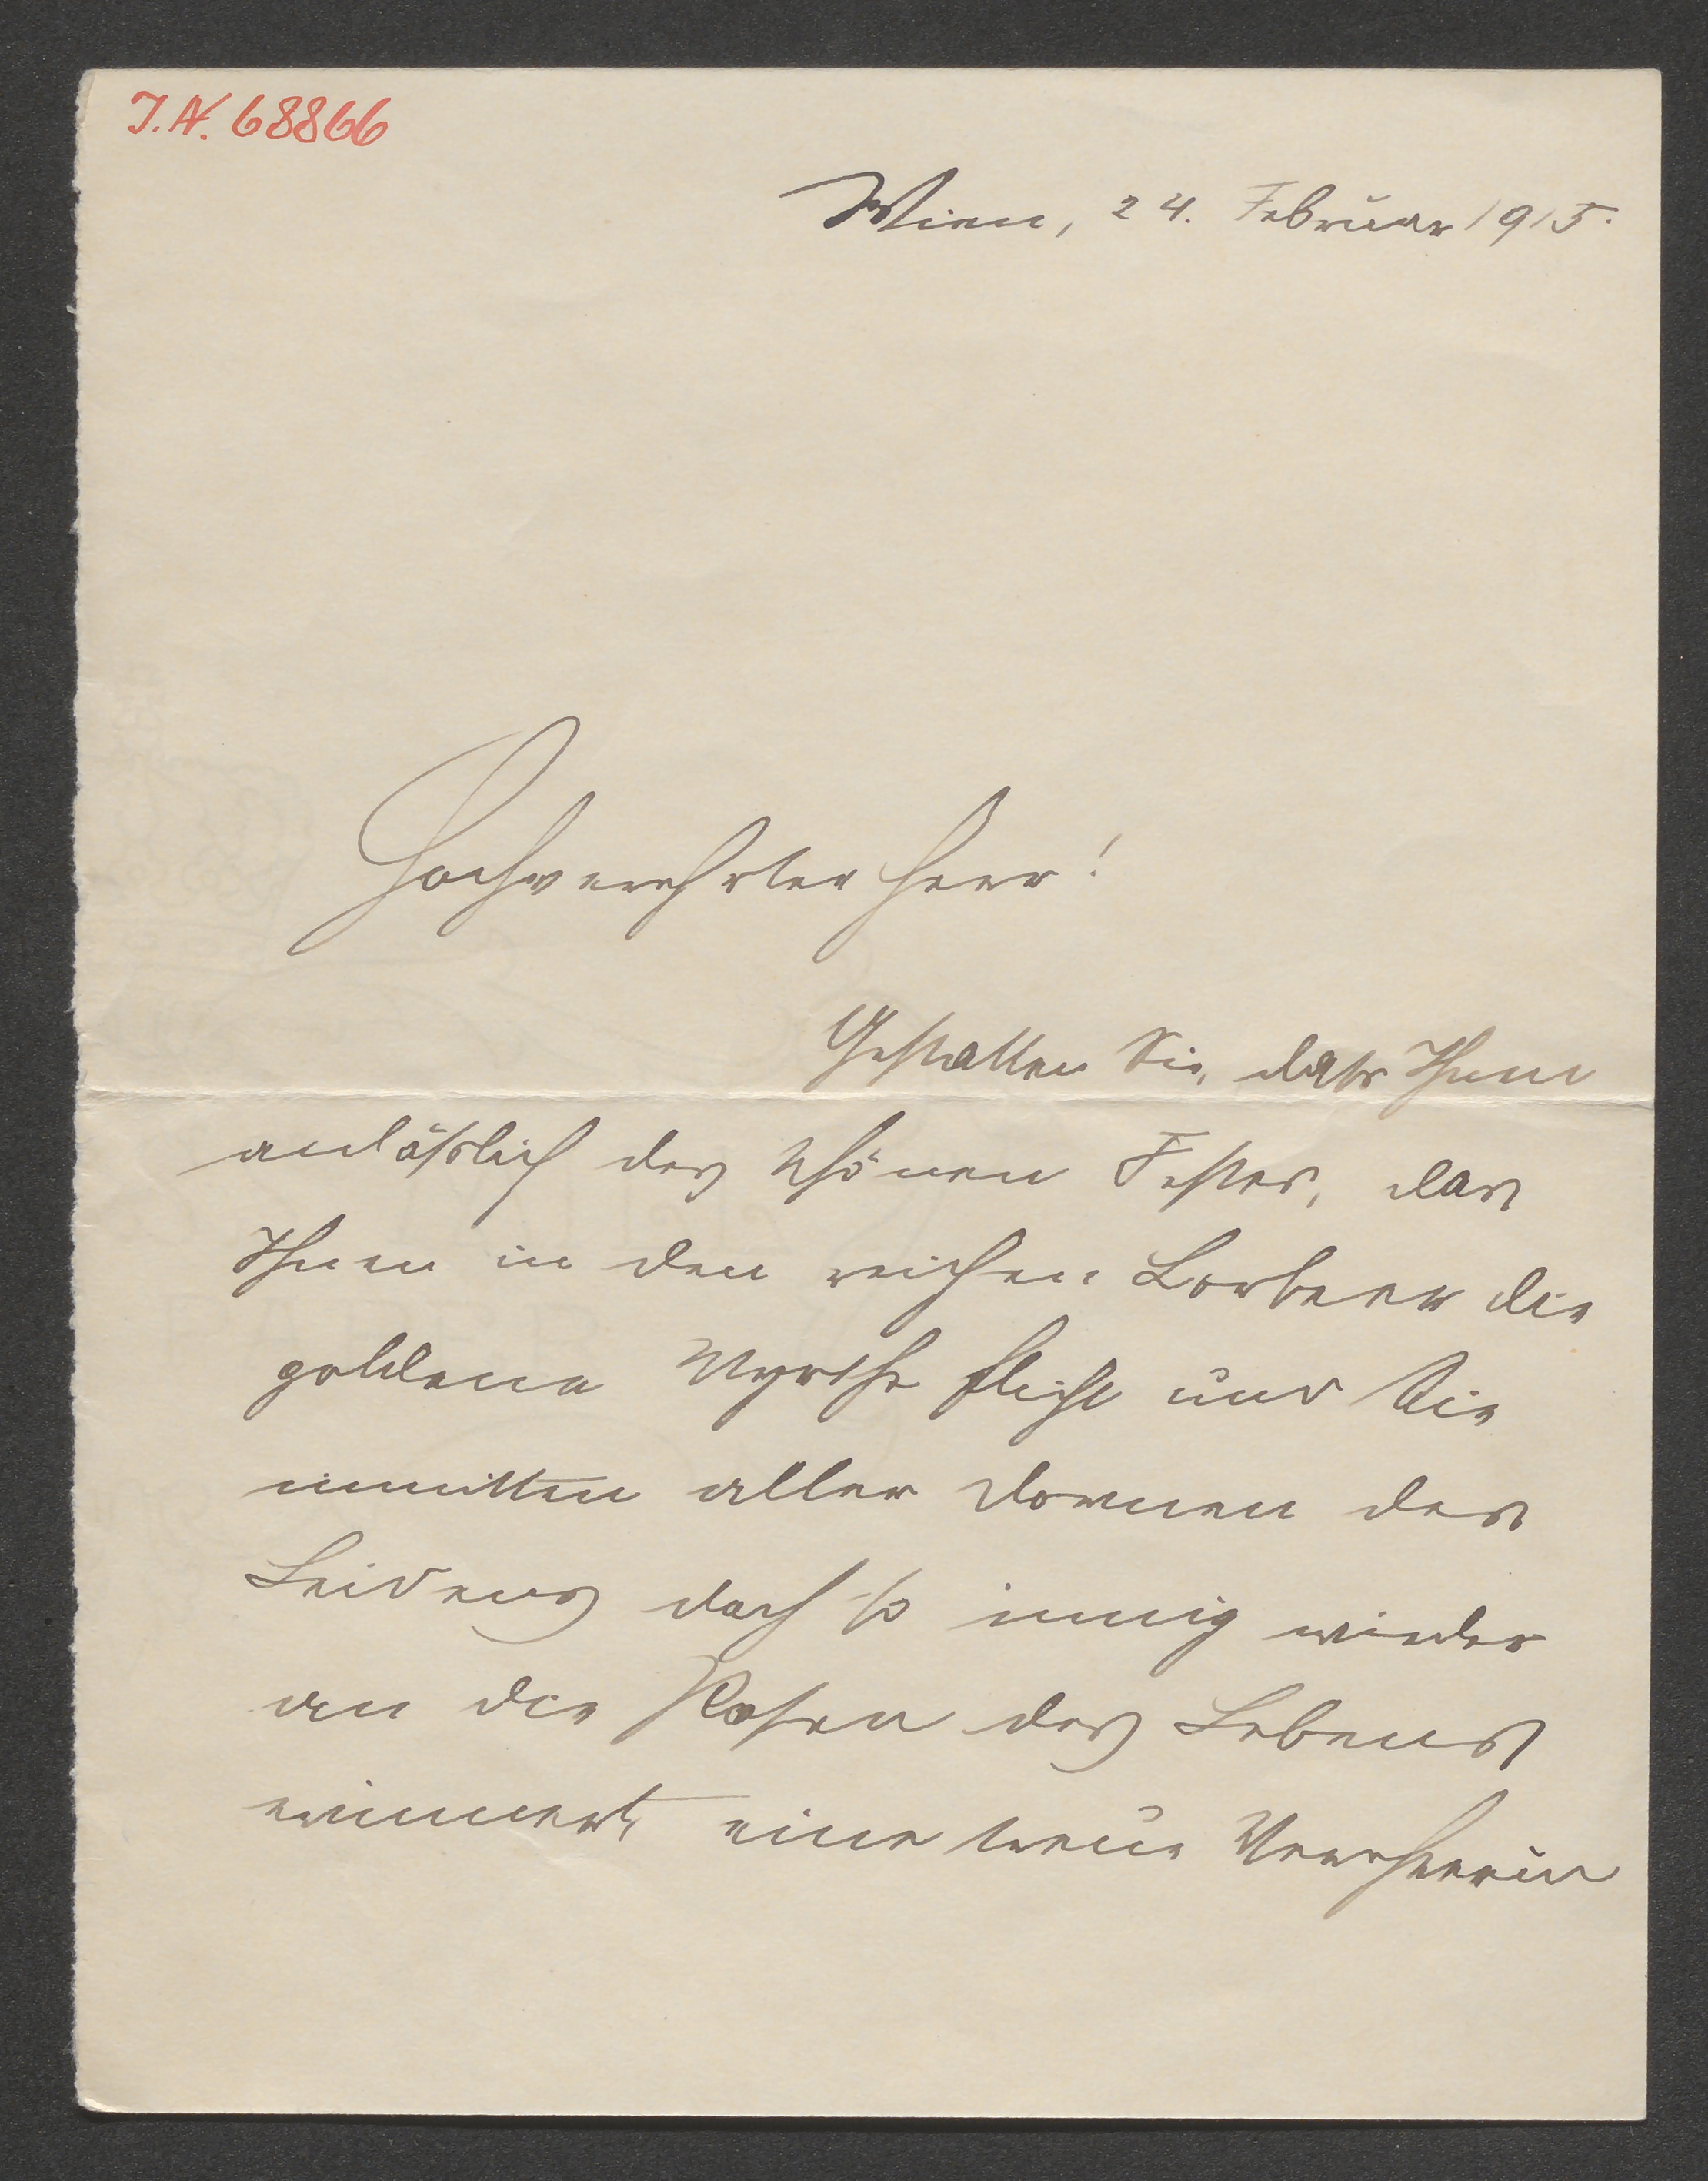 J.N. 68866
Wien, 24. Februar 1915.
Hochverehrter Herr!
Gestatten Sie, dass Ihnen
anläßlich des schönen Festes, das
Ihnen in den reichen Lorbeer die
goldene Myrthe flicht und Sie
inmitten aller Dornen des
Leidens doch so innig wieder
an die Rosen des Lebens
erinnert, eine treue Verehrerin